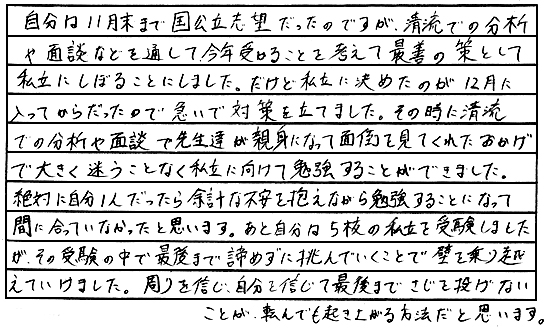 自分は11月末まで国公立志望だったのですが、清流での分析
や面談などを通して今年受かることを考えて最善の策として
私立にしぼることにしました。だけど私立に決めたのが12月に
入ってからだったので急いで対策を立てました。その時に清流
での分析や面談で先生達が親身になって面倒を見てくれたおかげ
で大きく迷うことなく私立に向けて勉強することができました。
絶対に自分1人だったら余計な不安を抱えながら勉強することになって
間に合っていなかったと思います。あと自分は5校の私立を受験しました
が、その受験の中で最後まで諦めずに挑んでいくことで壁を乗り越
えていけました。周りを信じ、自分を信じて最後までさじを投げない
ことが、転んでも起き上がる方法だと思います。